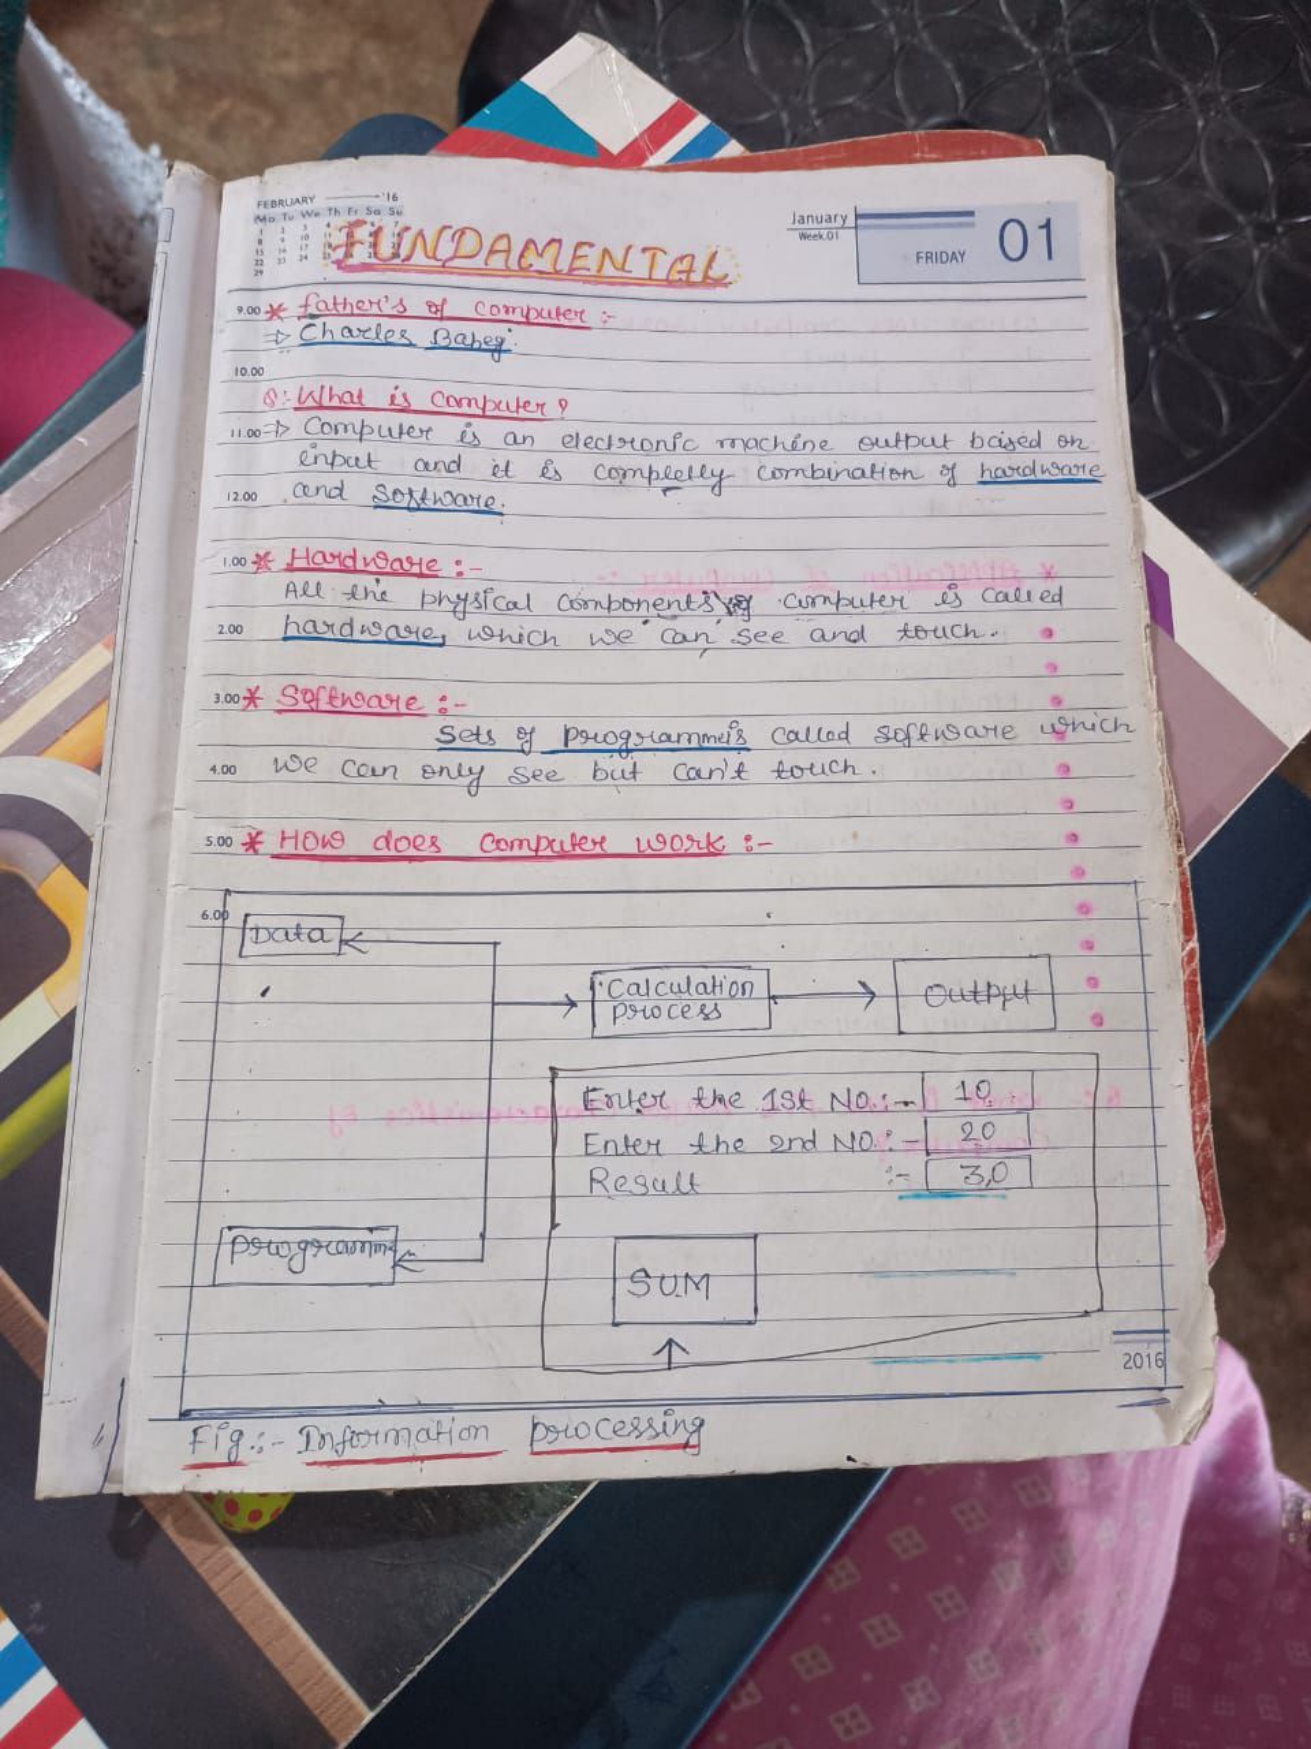 FEBRUARY '16
Mo Tu We Th Fr Sa Su
January
Week.01
FRIDAY 01
FUNDAMENTAL
9.00 * father's of computer :-
⇒ Charles Babeg.
10.00
Q:- What is computer?
11.00 ⇒ Computer is an electronic machine output baised on
input and it is completly combination of hardware
12.00 and software.
1.00 * Hardware :-
All the physical components of computer is called
2.00 hardware, which we can see and touch.
3.00 * Software :-
Sets of programme's called software which
4.00 we can only see but can't touch.
5.00 * How does computer work :-
6.00
Data
Calculation
process
Output
Enter the 1st No. :- 10
Enter the 2nd NO. :- 20
Result :- 30
programm
SUM
2016
Fig :- Information processing